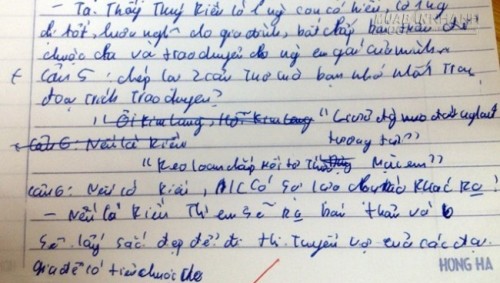 - Ta Thấy Thuý Kiều là 1 ng con có hiếu, có lòng
di tốt, luôn nghĩ cho gia đình, bất chấp bản thân để
chuộc cha và trao duyên cho ng em gái của mình.
Câu 5: chép lại 2 câu Thơ mà bạn nhớ nhất Trong
đoạn trích Trao duyên?
"Ôi Kim Lang, Hỡi Kim Lang "Giữa đg đứt gánh
tương tư"
Câu 6: Nếu là Kiều
"Keo loan chắp mối tơ Thừa Mặc em"
Câu 6: Nếu là Kiều, A/C có sự lựa chọn nào Khác Ko?
- Nếu là Kiều Thì em sẽ bán thân và
Sẽ lấy sắc đẹp để đi thi Tuyển vợ của các đại
gia để có tiền chuộc
HONG HA